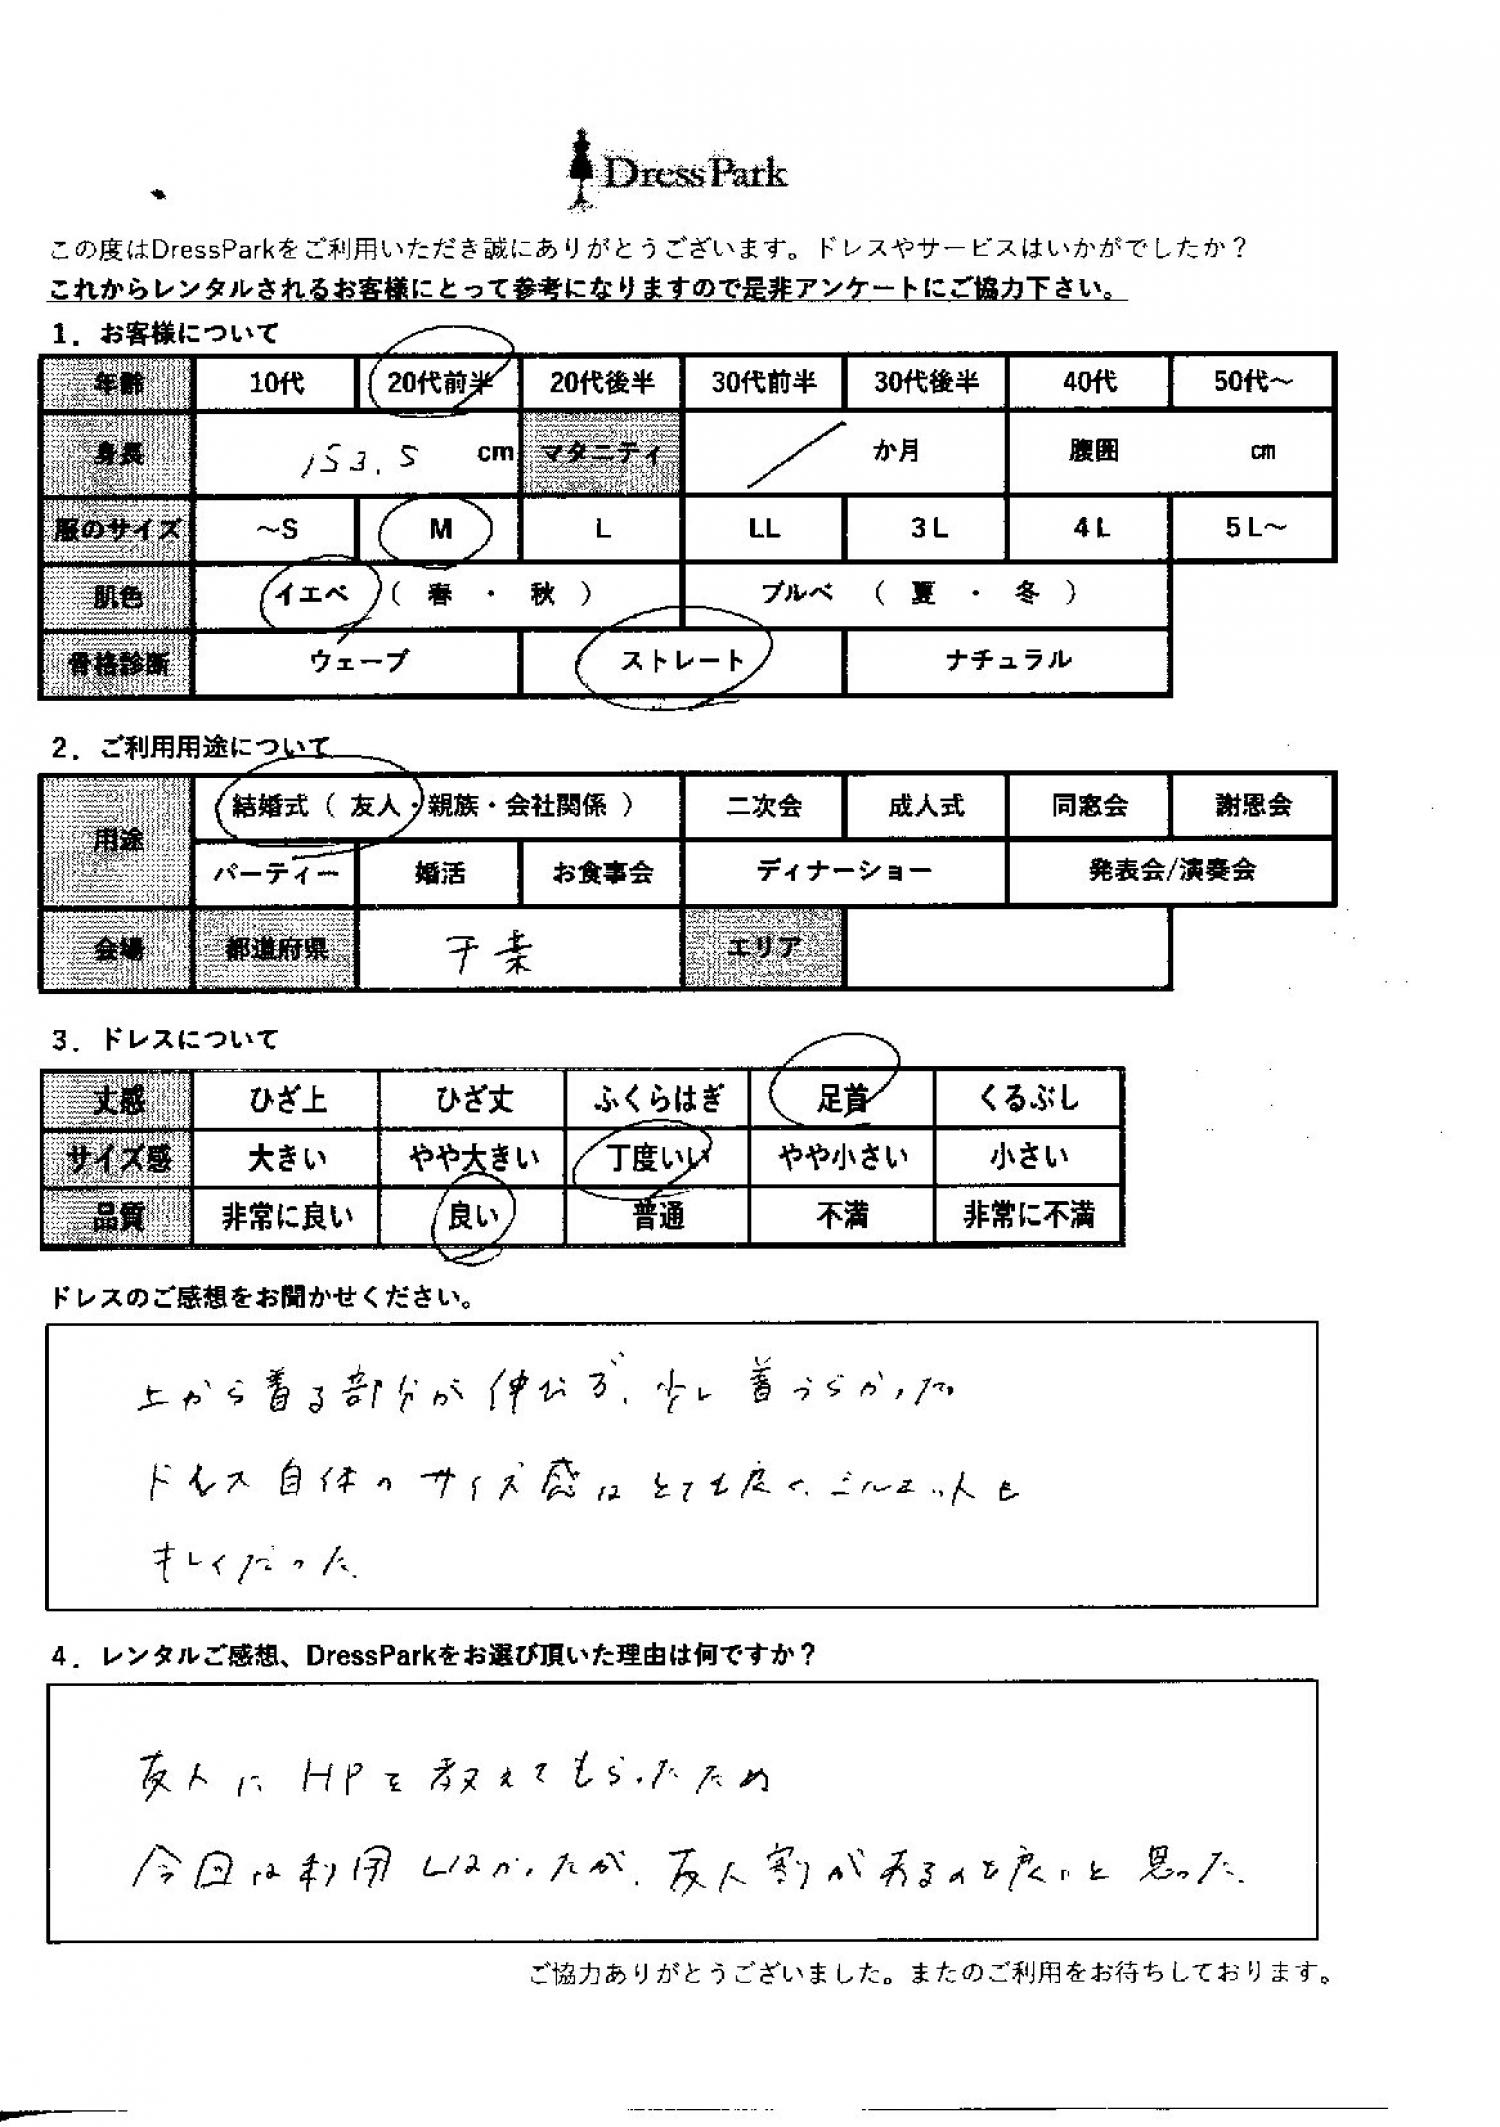 DressPark
この度はDressParkをご利用いただき誠にありがとうございます。ドレスやサービスはいかがでしたか？
これからレンタルされるお客様にとって参考になりますので是非アンケートにご協力下さい。
1．お客様について
年齢 10代 20代前半 20代後半 30代前半 30代後半 40代 50代～
身長 153.5 cm マタニティ ／ か月 腹囲 cm
服のサイズ ～S M L LL 3L 4L 5L～
肌色 イエベ（ 春 ・ 秋 ） ブルベ （ 夏 ・ 冬 ）
骨格診断 ウェーブ ストレート ナチュラル
2．ご利用用途について
用途 結婚式（ 友人・親族・会社関係 ） 二次会 成人式 同窓会 謝恩会
パーティー 婚活 お食事会 ディナーショー 発表会/演奏会
会場 都道府県 千葉 エリア
3．ドレスについて
丈感 ひざ上 ひざ丈 ふくらはぎ 足首 くるぶし
サイズ感 大きい やや大きい 丁度いい やや小さい 小さい
品質 非常に良い 良い 普通 不満 非常に不満
ドレスのご感想をお聞かせください。
上から着る部分が伸びず、少し着づらかった。
ドレス自体のサイズ感はとても良く、シルエットも
キレイだった。
4．レンタルご感想、DressParkをお選び頂いた理由は何ですか？
友人にHPを教えてもらったため
今回は利用しなかったが、友人割があるのも良いと思った。
ご協力ありがとうございました。またのご利用をお待ちしております。